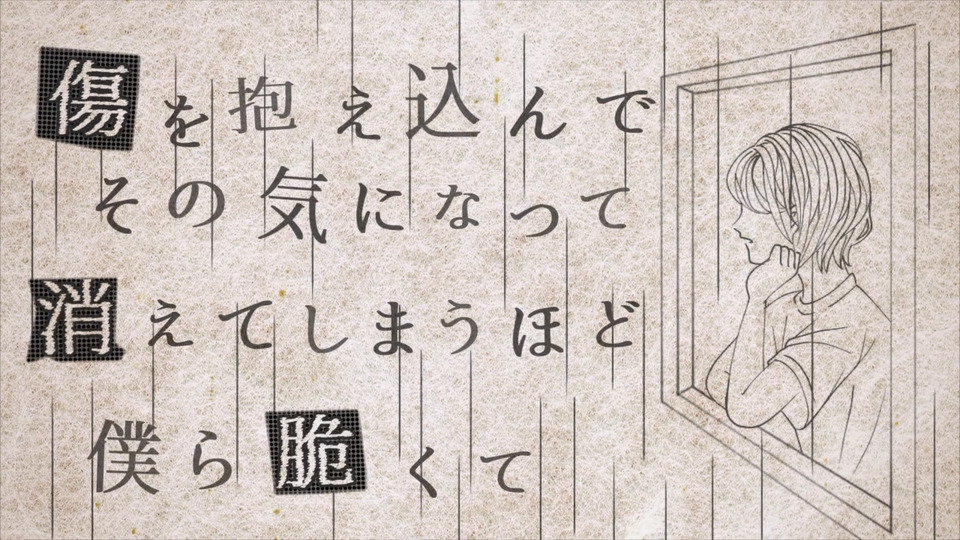 傷を抱え込んで
その気になって
消えてしまうほど
僕ら脆くて